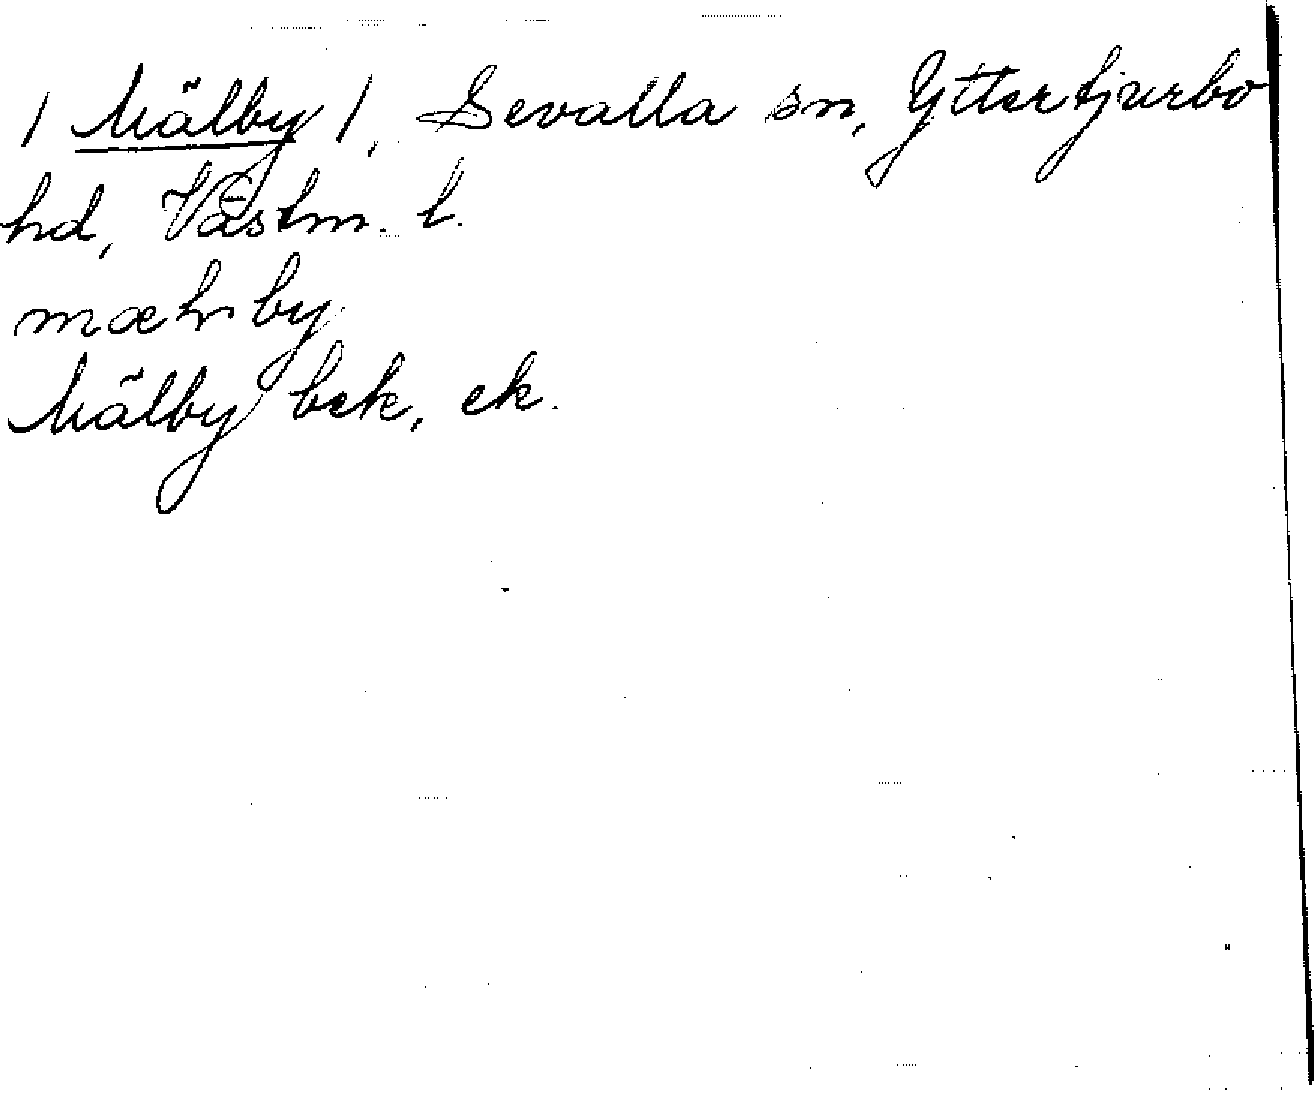 / Mälby /, Sevalla sn, Yttertjurbo
hd, Västm. l.
mælnby
Mälby bek, ek.